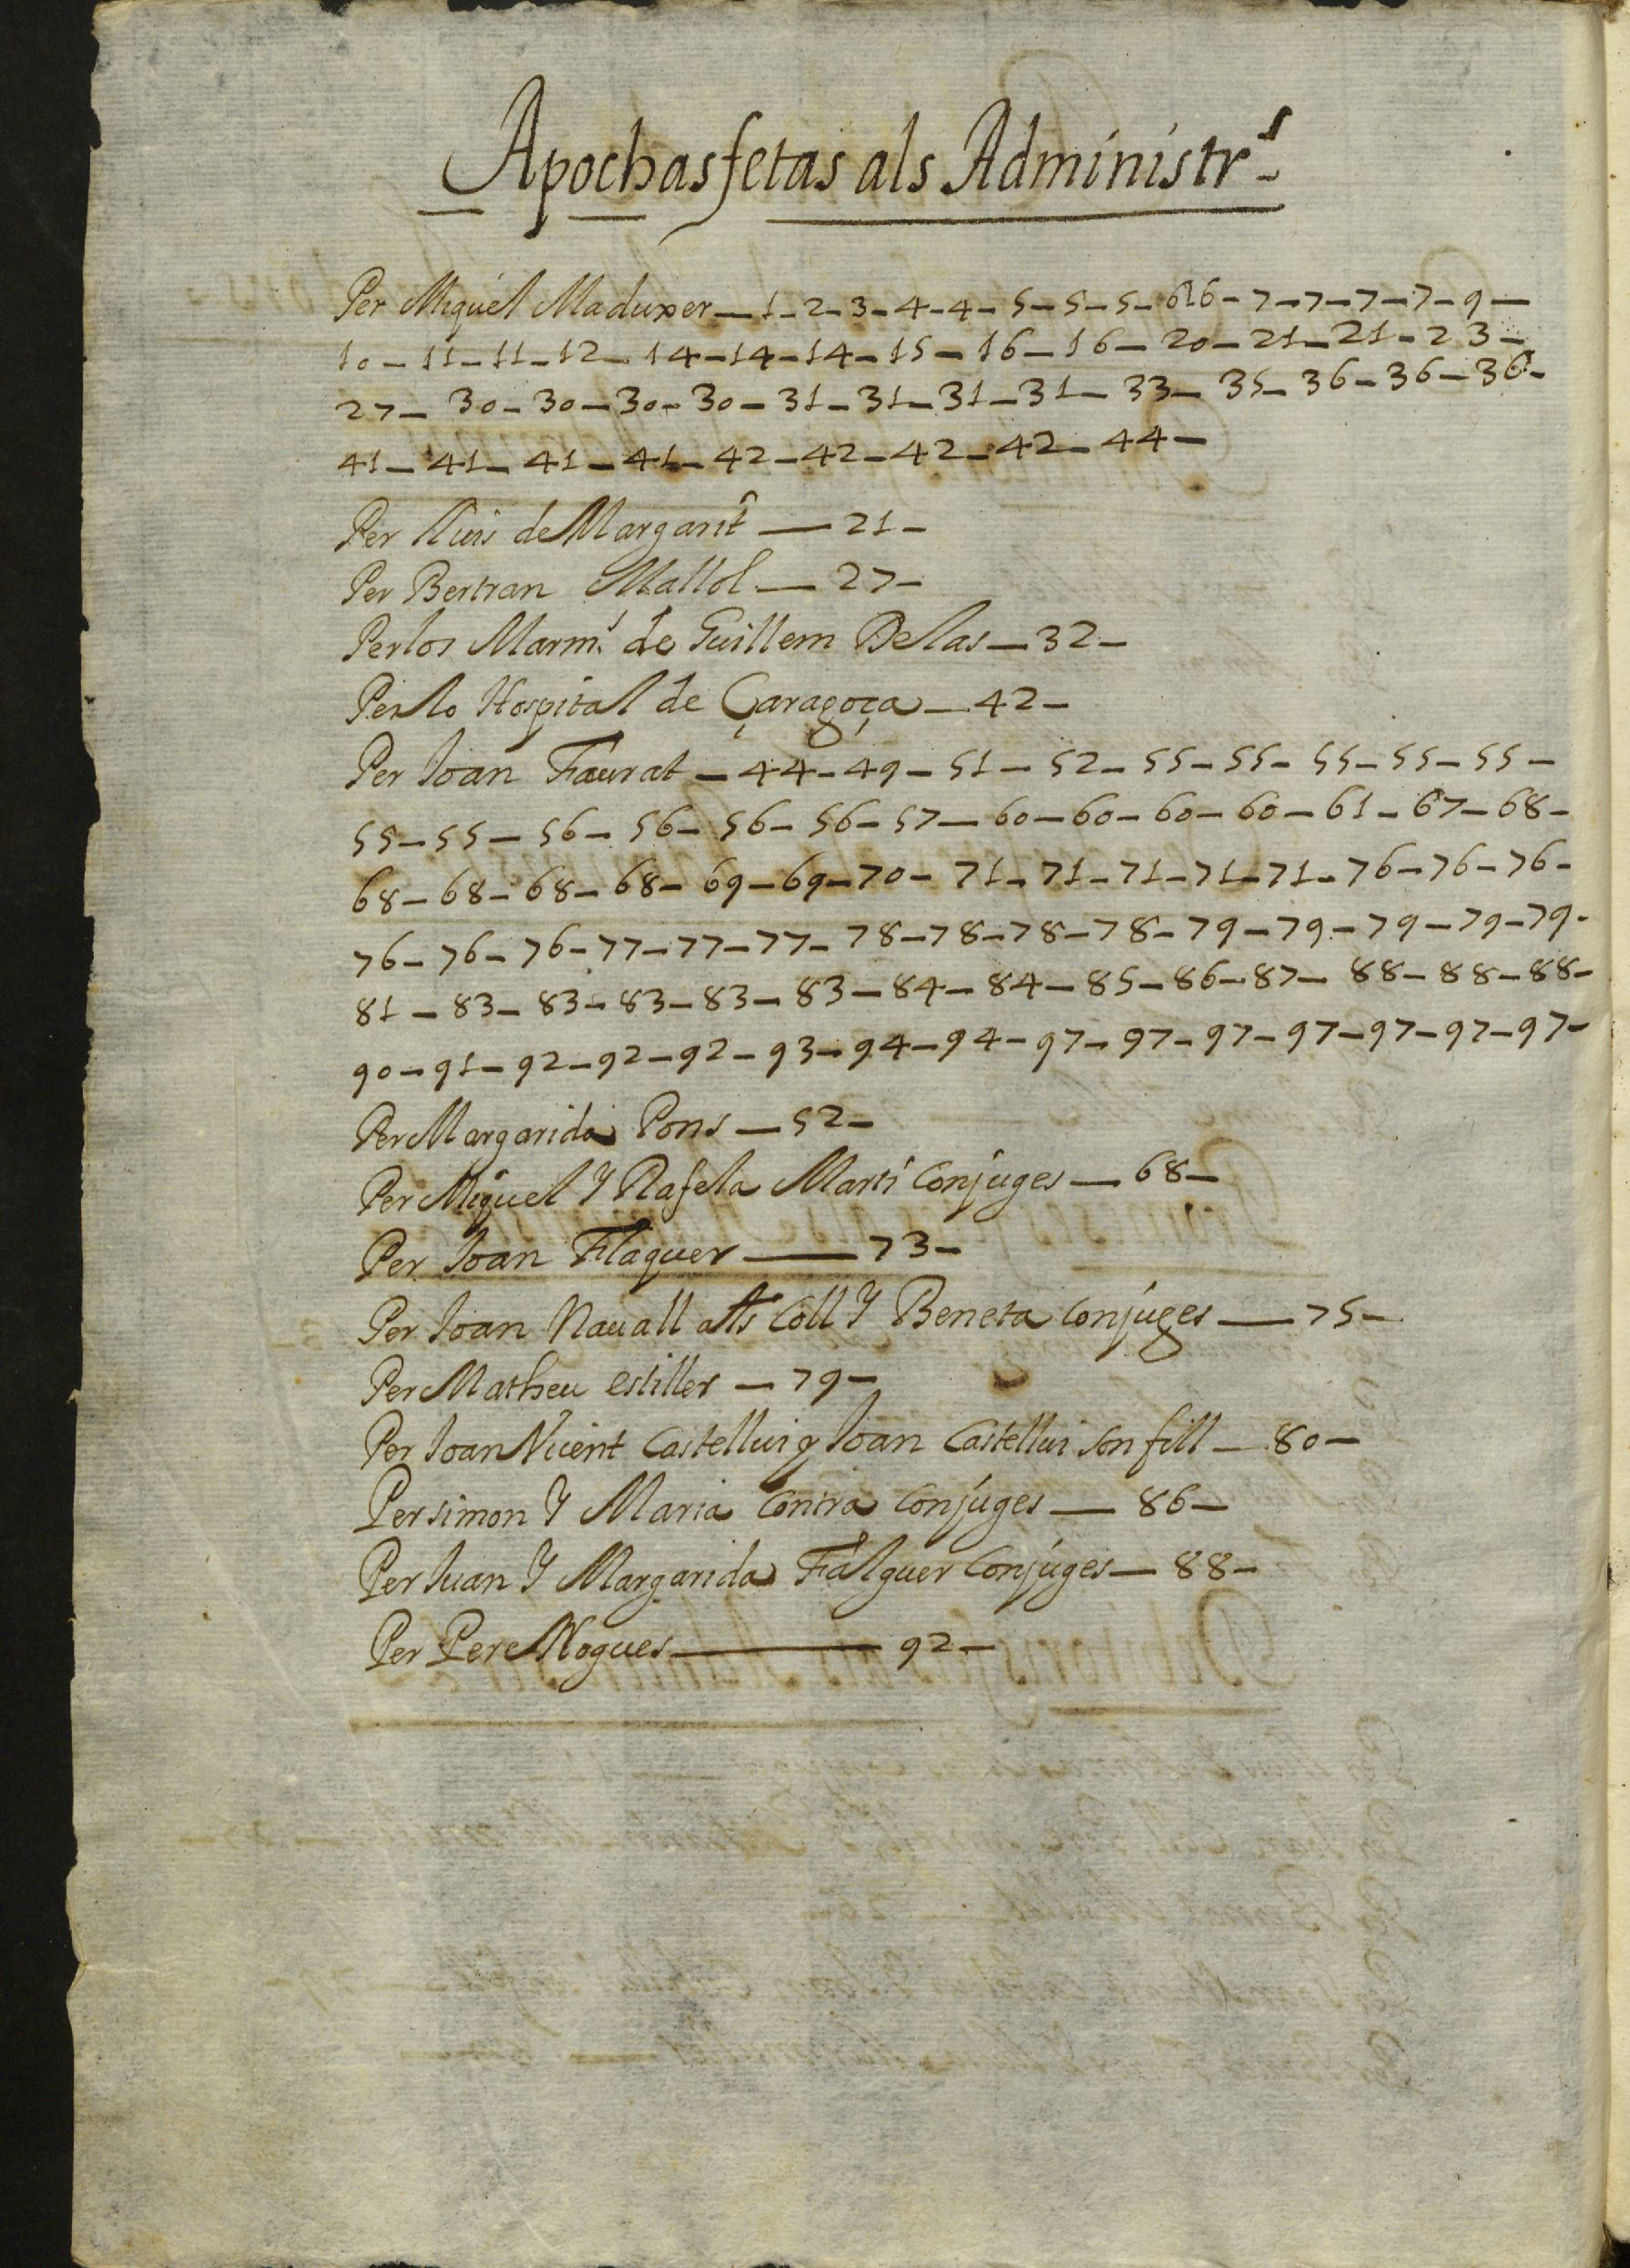 Apochas fetas als Administr.s
Per Miquel Maduxer — 1 - 2 - 3 - 4 - 4 - 5 - 5 - 5 - 6 6 - 7 - 7 - 7 - 7 - 9 —
10 - 11 - 11 - 12 - 14 - 14 - 14 - 15 - 16 - 16 - 20 - 21 - 21 - 23 -
27 - 30 - 30 - 30 - 30 - 31 - 31 - 31 - 31 - 33 - 35 - 36 - 36 - 36 -
41 - 41 - 41 - 41 - 42 - 42 - 42 - 42 - 44 -
Per lluis de Margarit — 21 -
Per Bertran Mallol — 27 -
Per los Marm.s de Guillem Belas — 32 -
Per lo Hospital de Çaragoça — 42 -
Per Joan Faurat — 44 - 49 - 51 - 52 - 55 - 55 - 55 - 55 - 55 -
55 - 55 - 56 - 56 - 56 - 56 - 57 - 60 - 60 - 60 - 60 - 61 - 67 - 68 -
68 - 68 - 68 - 68 - 69 - 69 - 70 - 71 - 71 - 71 - 71 - 71 - 76 - 76 - 76 -
76 - 76 - 76 - 77 - 77 - 77 - 78 - 78 - 78 - 78 - 79 - 79 - 79 - 79 - 79 -
81 - 83 - 83 - 83 - 83 - 83 - 84 - 84 - 85 - 86 - 87 - 88 - 88 - 88 -
90 - 91 - 92 - 92 - 92 - 93 - 94 - 94 - 97 - 97 - 97 - 97 - 97 - 97 - 97 -
Per Margarida Pons — 52 -
Per Miquel Y Rafela Marti Conjuges — 68 -
Per Joan Flaquer — 73 -
Per Joan Nauall als Coll Y Beneta Conjuges — 75 -
Per Matheu estiller — 79 -
Per Joan Vicent Castellui y Joan Castellui son fill — 80 -
Per simon Y Maria Contra Conjuges — 86 -
Per Juan Y Margarida Falguer Conjuges — 88 -
Per Pere Nogues — 92 -